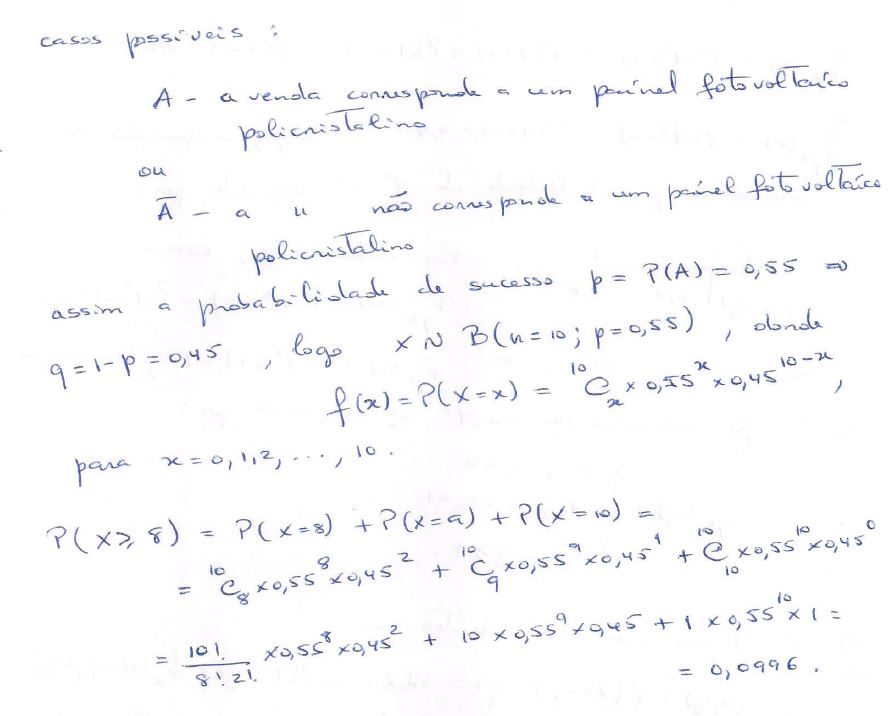 casos possíveis :
A - a venda corresponde a um painel fotovoltaico
policristalino
ou
Ā - a " não corresponde a um painel fotovoltaico
policristalino
assim a probabilidade de sucesso p = P(A) = 0,55 ⇒
q = 1-p = 0,45 , logo X ~ B(n=10; p=0,55) , donde
f(x) = P(X=x) = ¹⁰Cₓ × 0,55ˣ × 0,45¹⁰⁻ˣ ,
para x = 0,1,2, ..., 10.
P(X≥8) = P(X=8) + P(X=9) + P(X=10) =
= ¹⁰C₈ × 0,55⁸ × 0,45² + ¹⁰C₉ × 0,55⁹ × 0,45¹ + ¹⁰C₁₀ × 0,55¹⁰ × 0,45⁰
= 10!/(8!2!) × 0,55⁸ × 0,45² + 10 × 0,55⁹ × 0,45 + 1 × 0,55¹⁰ × 1 =
= 0,0996 .